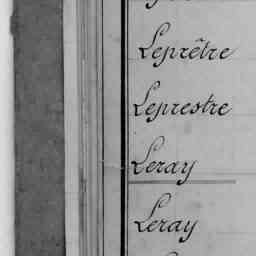 Leprêtre
Leprestre
Leray
Leray